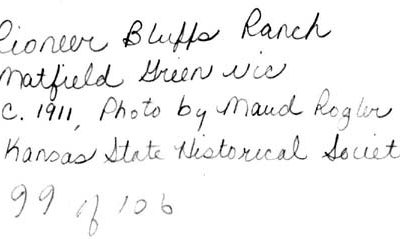 Pioneer Bluffs Ranch
Matfield Green vic
C. 1911, Photo by Maud Rogler
Kansas State Historical Societ
99 of 106